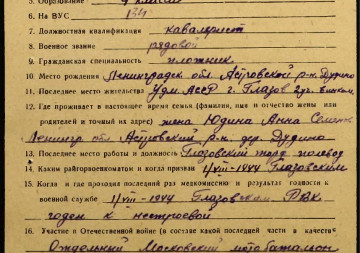 5. Образование 4 класса
6. На ВУС 134
7. Должностная квалификация кавалерист
8. Военное звание рядовой
9. Гражданская специальность плотник
10 Место рождения Ленинградск. обл. Островской р-н. Дудино
11. Последнее место жительства Удм. АССР г. Глазов
12. Где проживает в настоящее время семья (фамилия, имя и отчество жены или
родителей и точный их адрес) жена Юдина Анна Семенов
Ленингр обл. Островский р-н. дер. Дудино
13. Последнее место работы и должность Глазовский
14. Каким райгорвоенкоматом и когда призван 1/VIII-1944 Глазовским
15. Когда и где проходил последний раз медкомиссию и результат годности к
военной службе 1/VIII-1944 Глазовским РВК
годен к нестроевой
16. Участие в Отечественной войне (в составе какой последней части в качестве
Отдельный Московский мотобатальон